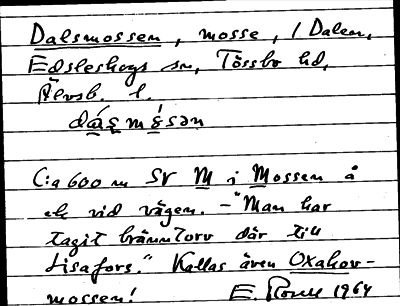 Dalsmossen, mosse, i Dalen,
Edsleskogs sn, Tössbo hd,
Älvsb. l.
dásmósən
C:a 600 m SV M i Mossen å
ek vid vägen. – "Man har
tagit bränntorv där till
Lisafors." Kallas även Oxahov-
mossen! E. 1964